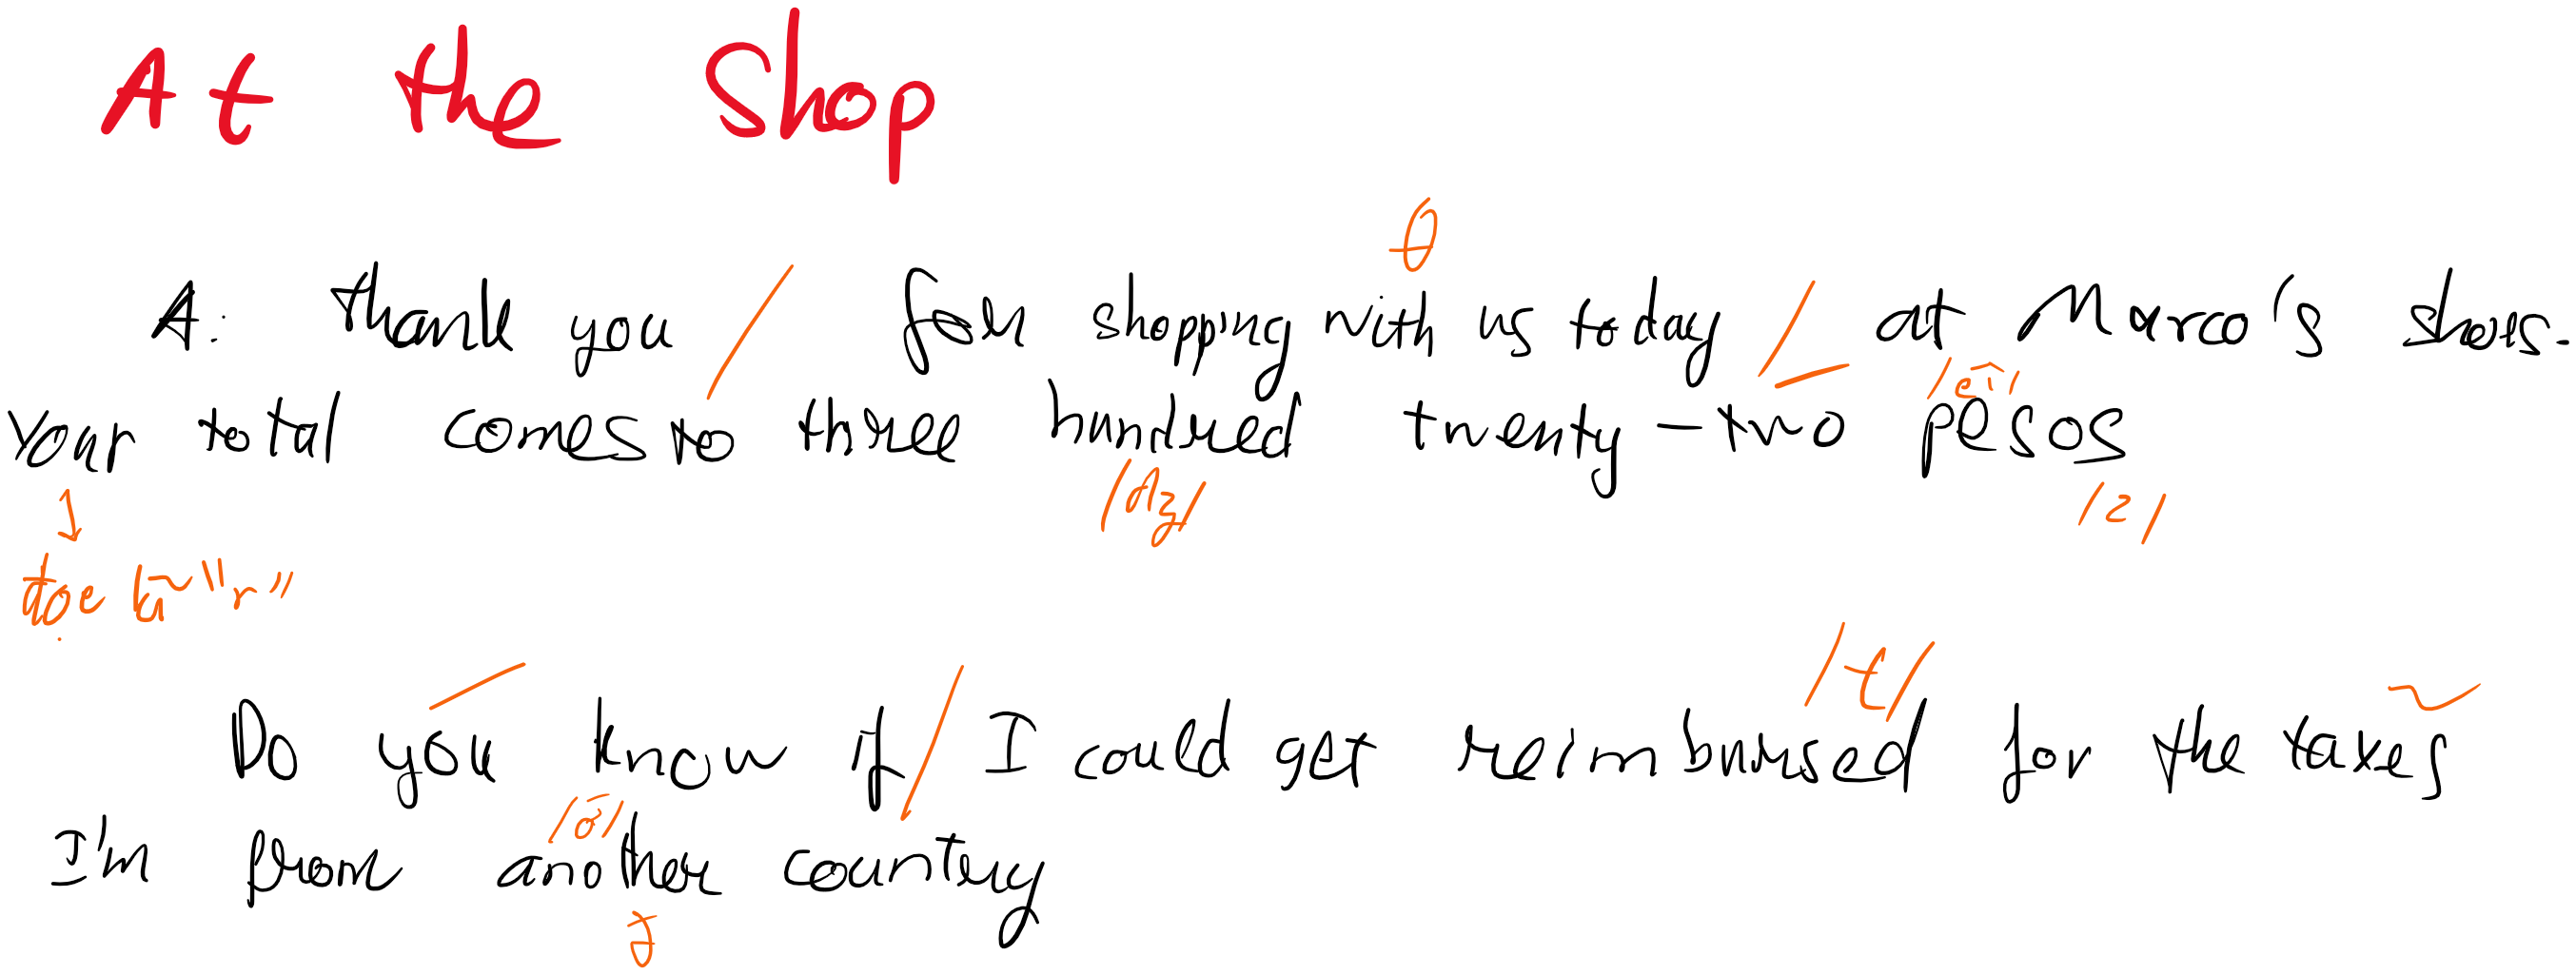 At the Shop
θ
A: thank you / for shopping with us today / at Marco's shoes.
/ei/
Your total comes to three hundred twenty-two pesos
/dʒ/ /z/
đọc kĩ "r"
/t/
Do you know if / I could get reimbursed for the taxes
I'm from another country